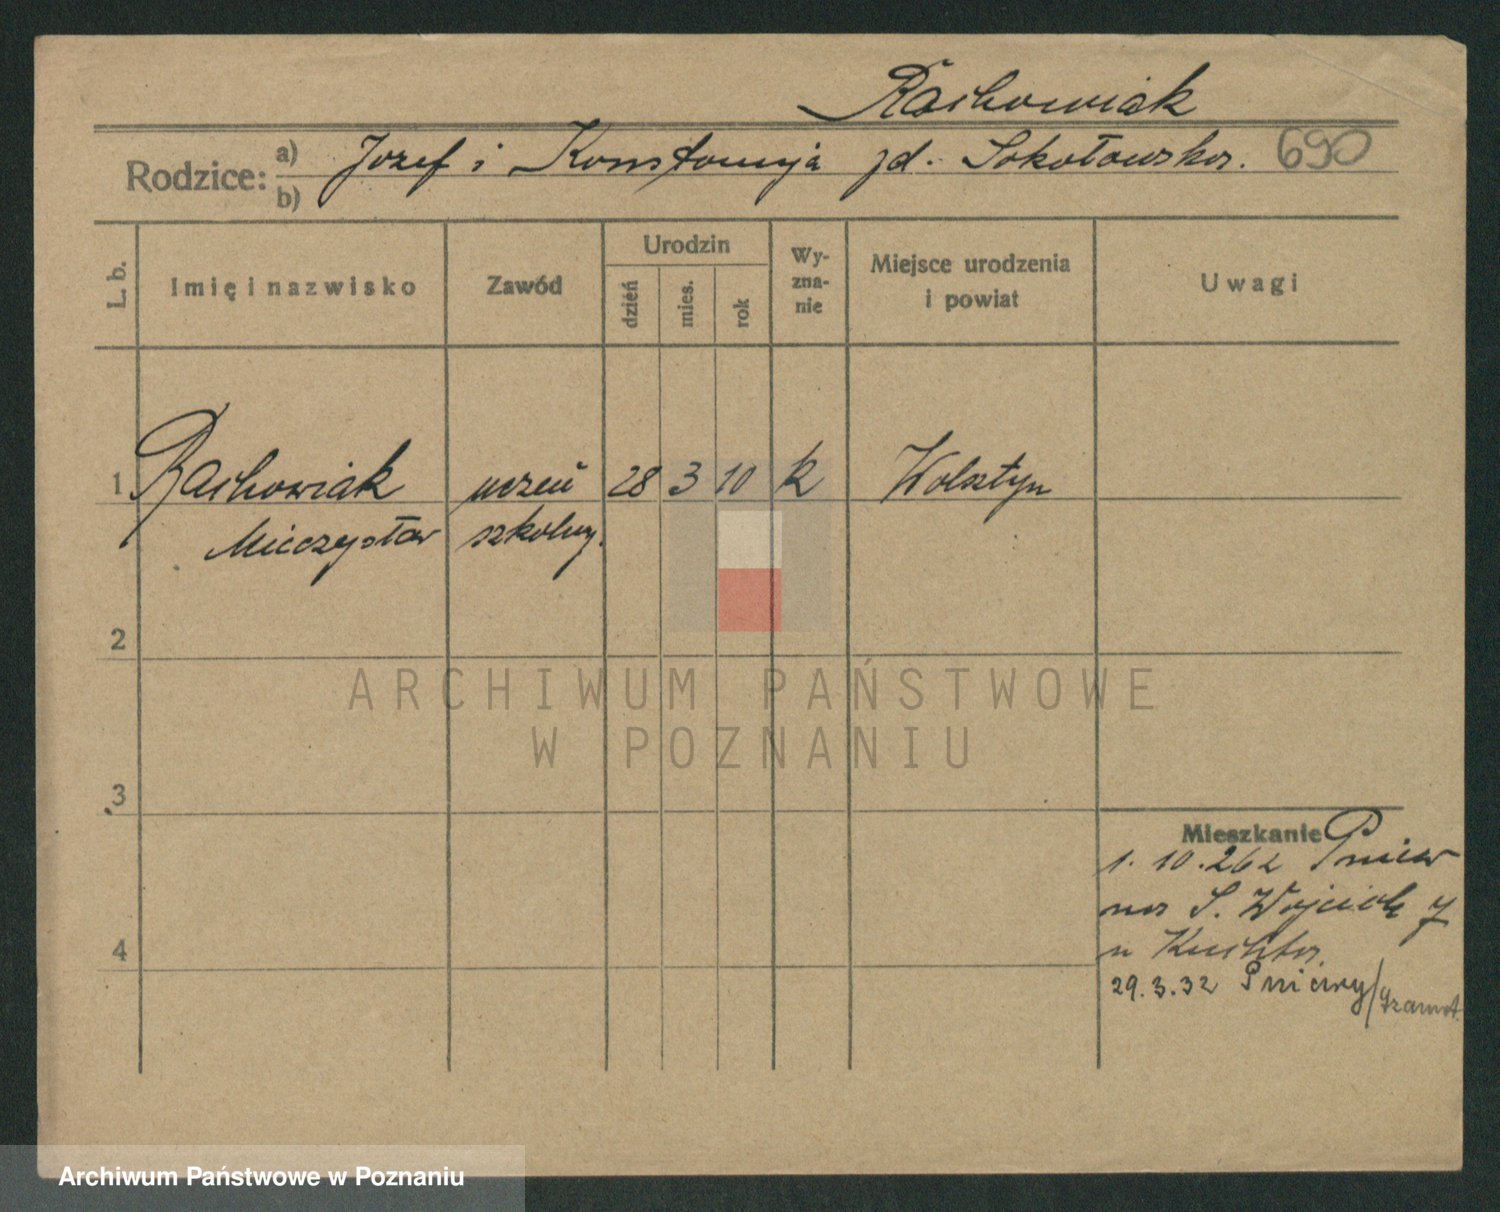 Rachowiak
Rodzice: a) Józef i Konstancja zd. Sokołowska. 690
b)
L. b. Imię i nazwisko Zawód Urodzin dzień mies. rok Wy-zna-nie Miejsce urodzenia i powiat Uwagi
1 Rachowiak uczeń 28 3 10 k Wolsztyn
Mieczysław szkolny.
2
ARCHIWUM PAŃSTWOWE
W POZNANIU
3
Mieszkanie
1. 10. Pniew
S. Wojciech 7
u
4
29.3.32 Pniewy/Szamot.
Archiwum Państwowe w Poznaniu